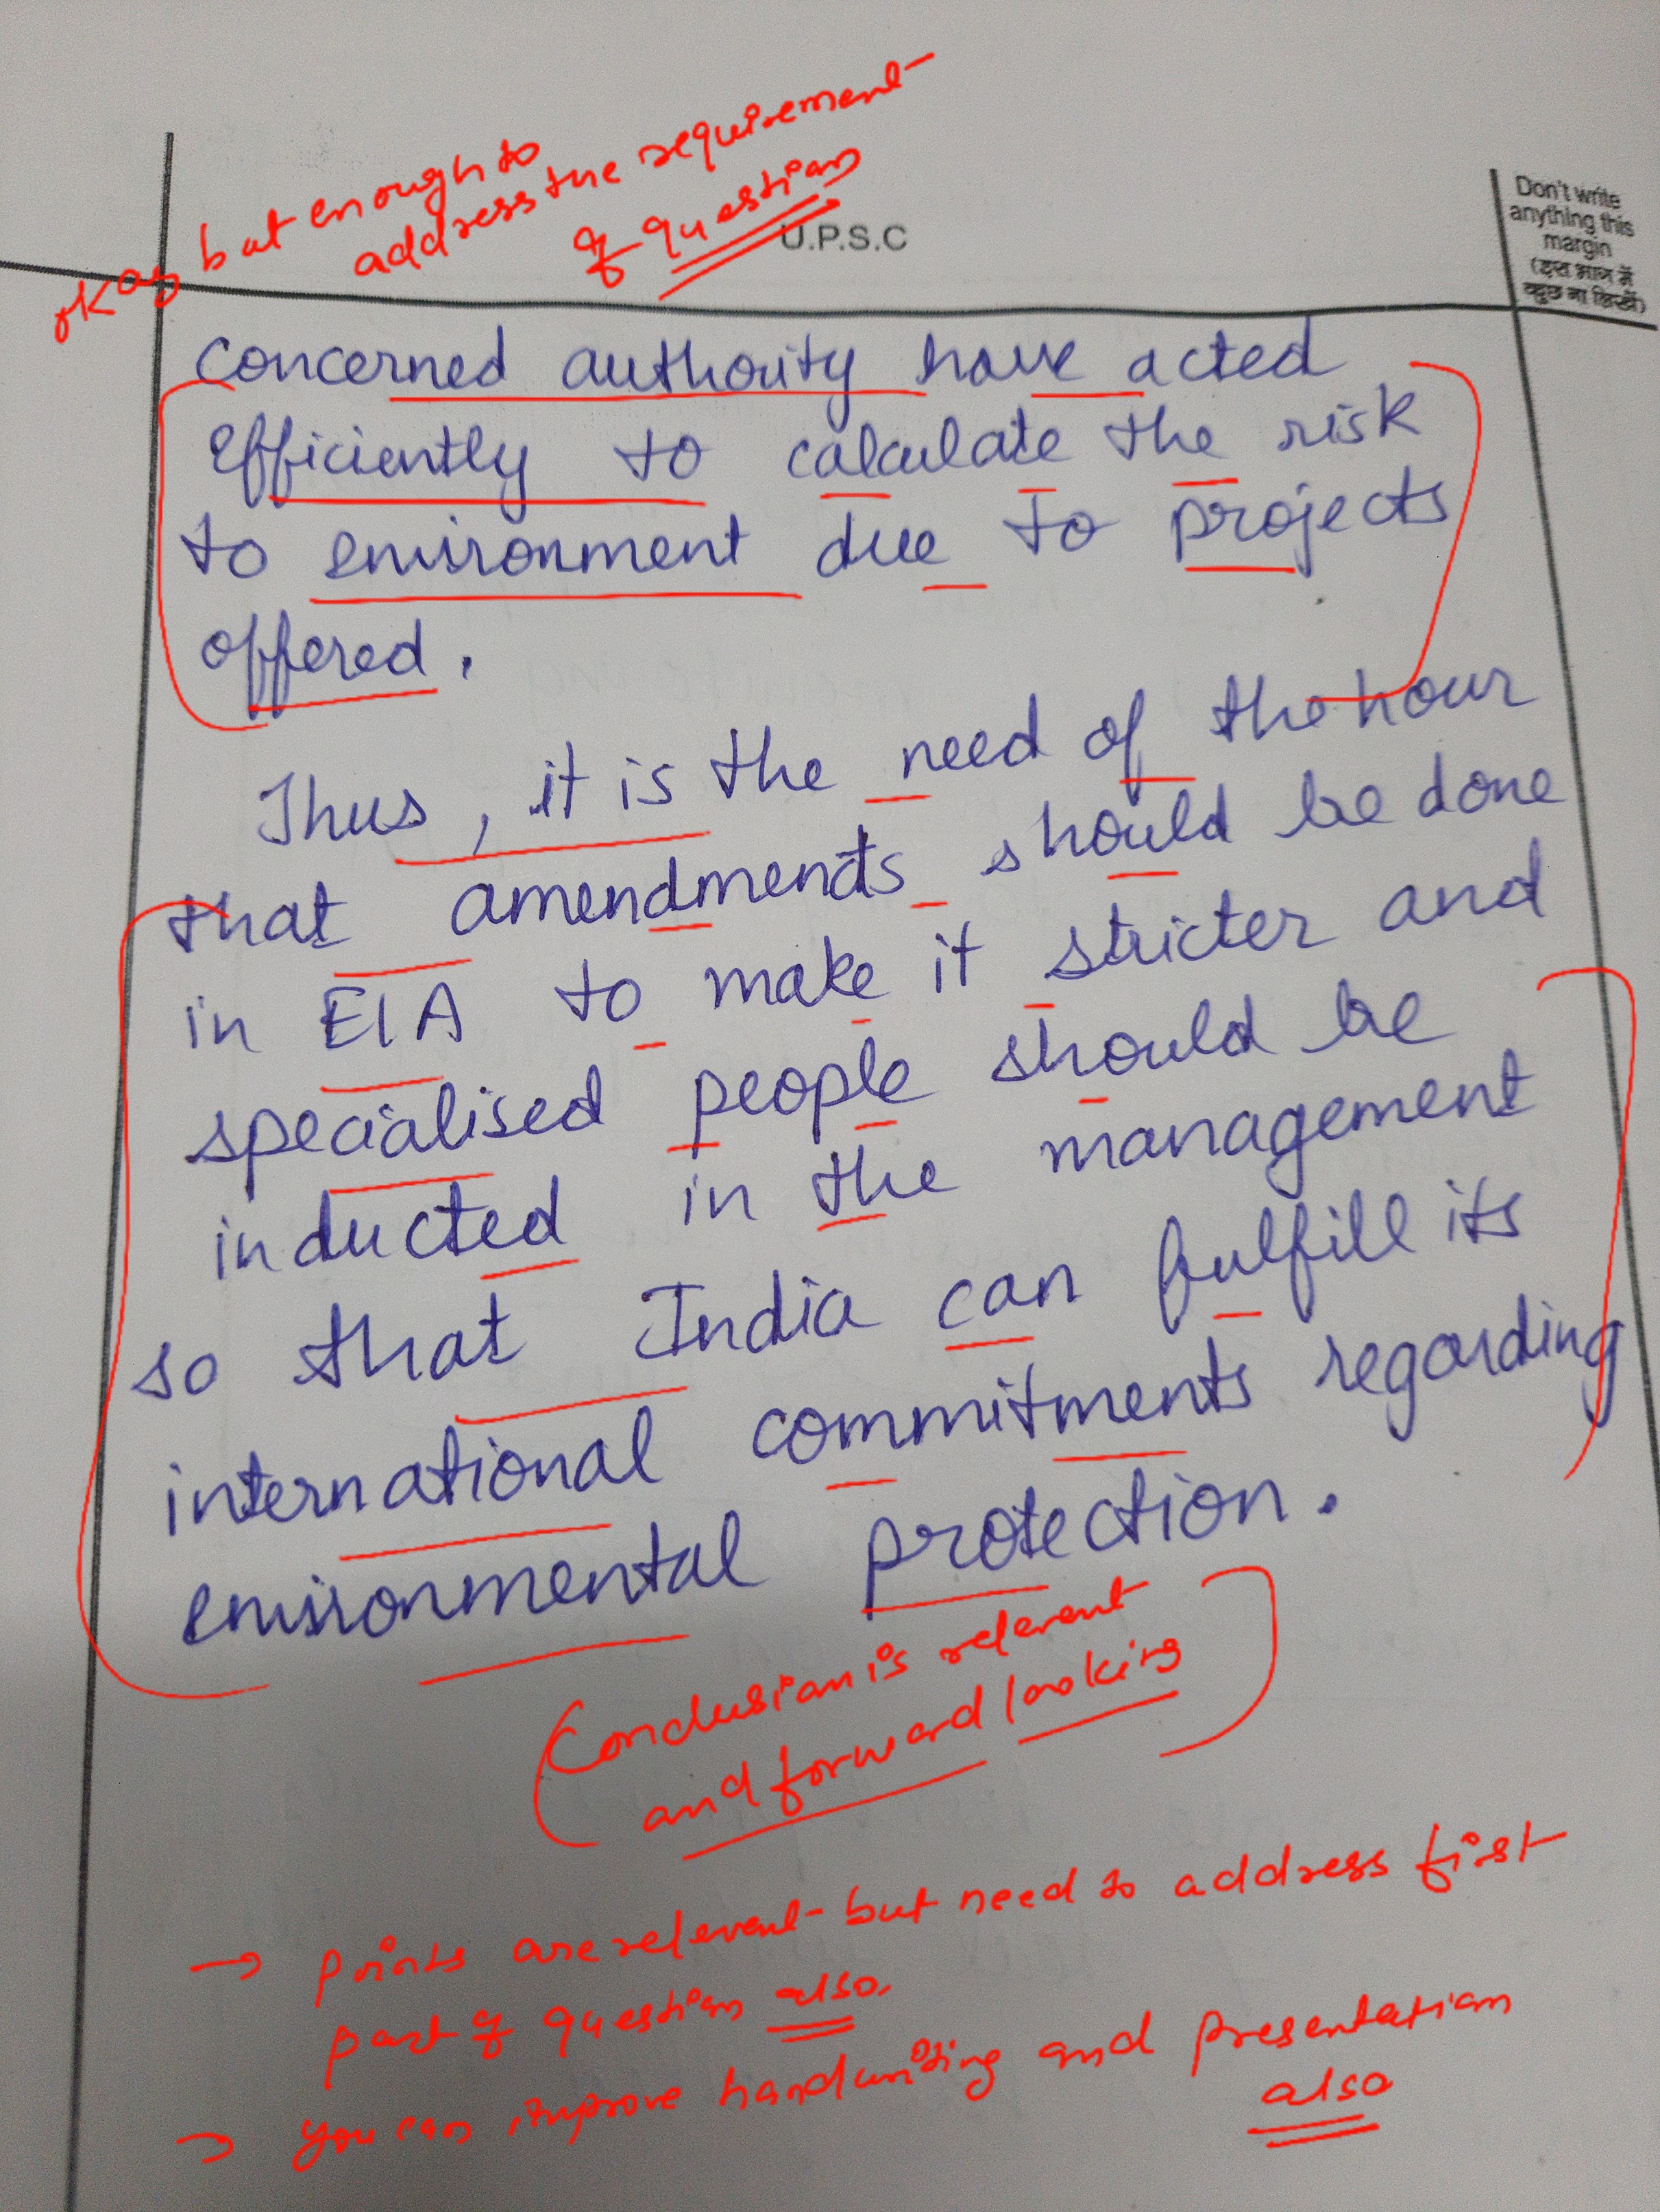 okay but enough to
address the requirement
of question
U.P.S.C
Don't write
anything this
margin
(इस भाग में
कुछ ना लिखें)
Concerned authority have acted
Efficiently to calculate the risk
to environment due to projects
offered.
Thus, it is the need of the hour
that amendments should be done
in EIA to make it stricter and
specialised people should be
inducted in the management
so that India can fulfill its
international commitments regarding
environmental protection.
Conclusion is relevent
and forward looking
→ points are relevent but need to address first
part of question also.
→ you can improve handwriting and presentation
also